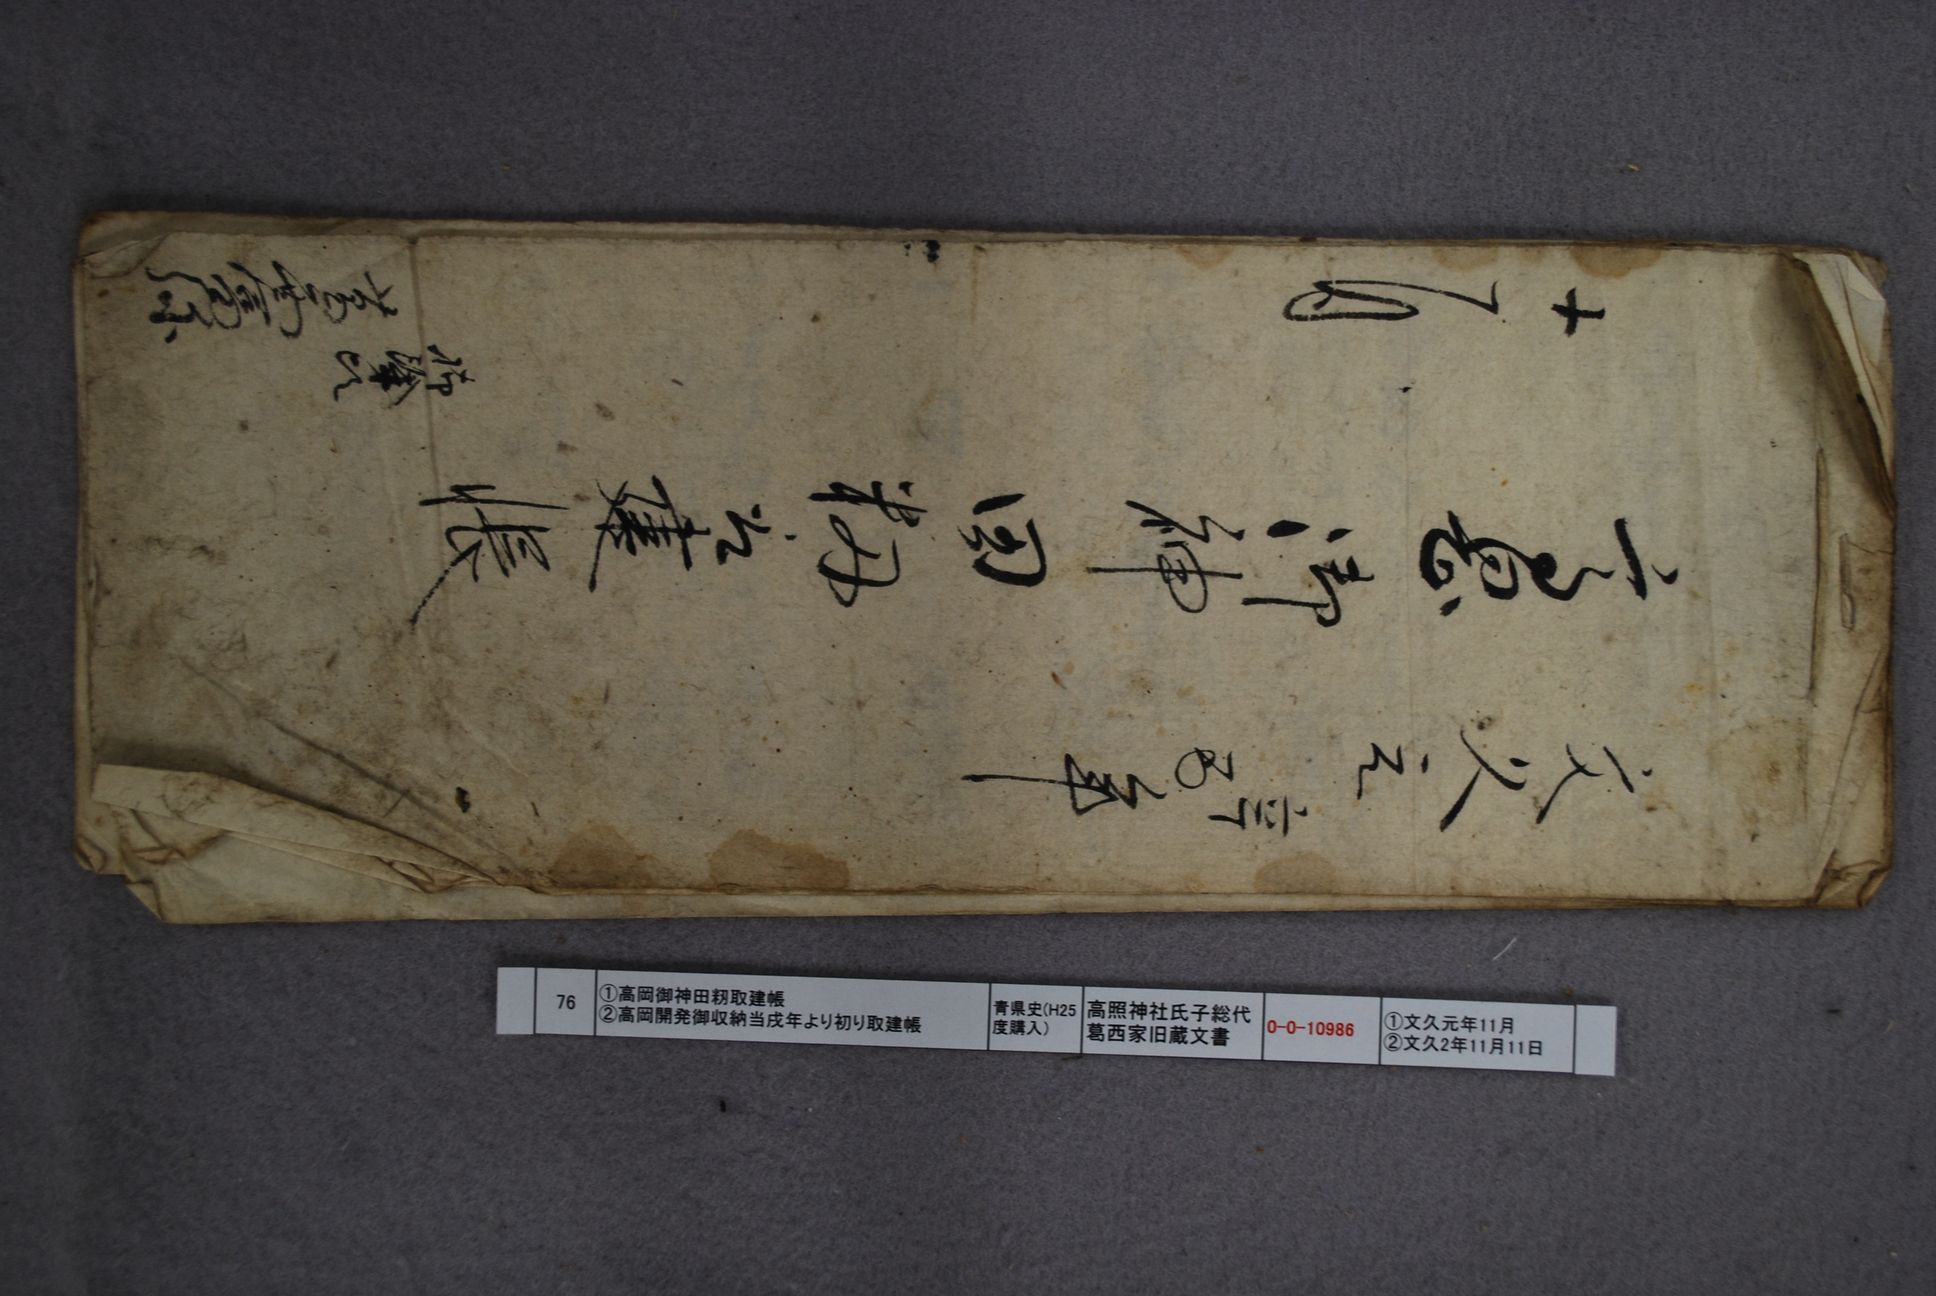 文久元辛酉年
高岡御神田籾取建帳
十一月
76
①高岡御神田籾取建帳
②高岡開発御収納当戌年より初り取建帳
青県史(H25
度購入)
高照神社氏子総代
葛西家旧蔵文書
O-0-10986
①文久元年11月
②文久2年11月11日